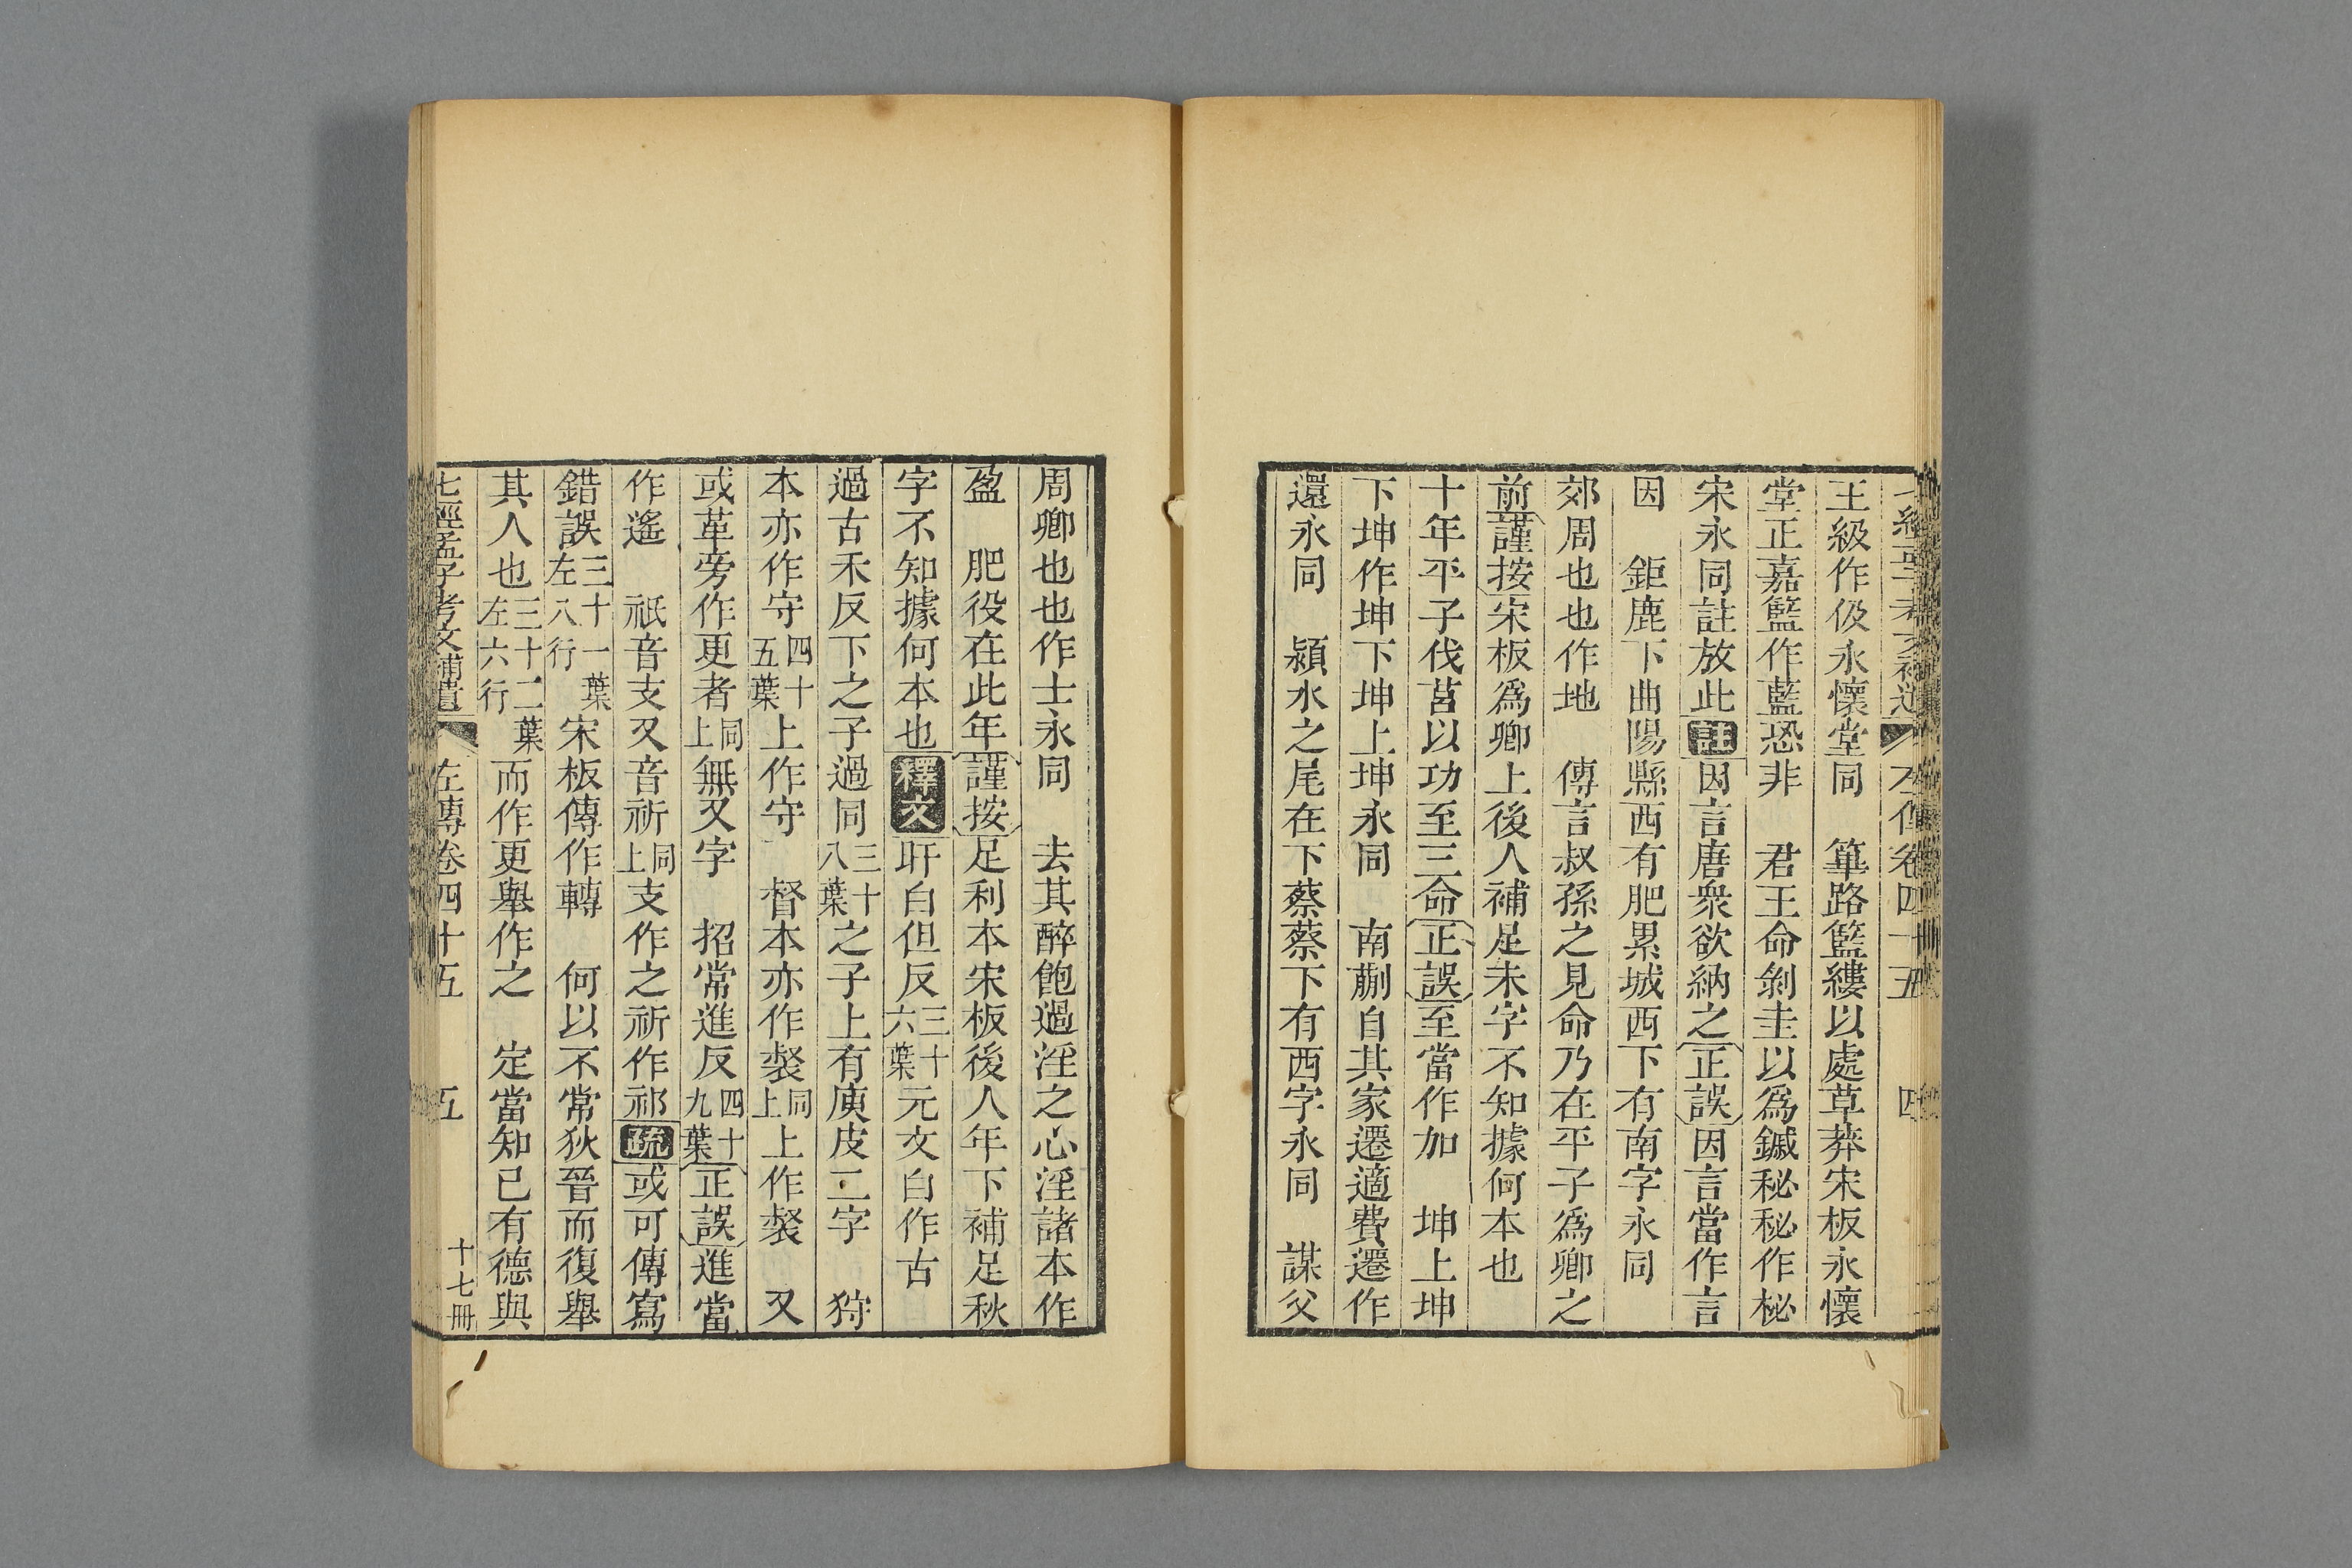 王級作伋永懷堂同　篳路籃縷以處草莽宋板永懷
堂正嘉籃作藍恐非　君王命剝圭以爲鏚秘秘作柲
宋永同註放此註因言唐衆欲納之正誤因言當作言
因　鉅鹿下曲陽縣西有肥累城西下有南字永同
郊周也也作地　傳言叔孫之見命乃在平子爲卿之
前謹按宋板爲卿上後人補足未字不知據何本也
十年平子伐莒以功至三命正誤至當作加　坤上坤
下坤作坤下坤上坤永同　南蒯自其家遷適費遷作
還永同　潁水之尾在下蔡蔡下有西字永同　謀父
周卿也也作士永同　去其醉飽過淫之心淫諸本作
盈　肥役在此年謹按足利本宋板後人年下補足秋
字不知據何本也釋文旰白但反三十六葉元文白作古
過古禾反下之子過同三十八葉之子上有庾皮二字　狩
本亦作守四十五葉上作守　督本亦作裻同上上作裻　又
或革旁作更者同上無又字　招常進反四十九葉正誤進當
作遙　祇音支又音祈同上支作之祈作祁疏或可傳寫
錯誤三十一葉左八行宋板傳作轉　何以不常狄晉而復舉
其人也三十二葉左六行而作更舉作之　定當知已有德與
七經孟子考文補遺　左傳卷四十五　五　十七冊